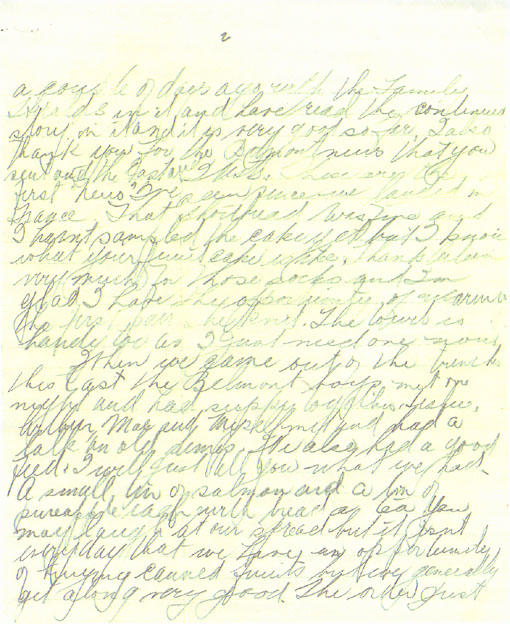 2
a couple of days ago with the Family
Heralds in it and have read the continued
story in it and it is very good so far. I also
thank you for the Belmont news that you
sent out
first news I've seen since we landed in
France. That shortbread was fine and
I havnt sampled the cake yet but I know
what your fruit cake is like. Thank
very much for those socks and I'm
glad I have the opportunity of wearing
the first pair knit. The towel is
handy too as I just need one now.
When we came out of the trenches
this last the Belmont boys met one
night and had supper
May and myself met and had a
talk on old times. We also had a good
feed. I will just tell you what we had.
A small tin of salmon and a tin of
pineapple each with bread as you
may laugh at our spread but it isnt
everyday that we have an opportunity
of buying canned fruits but we generally
get along very good. The order just